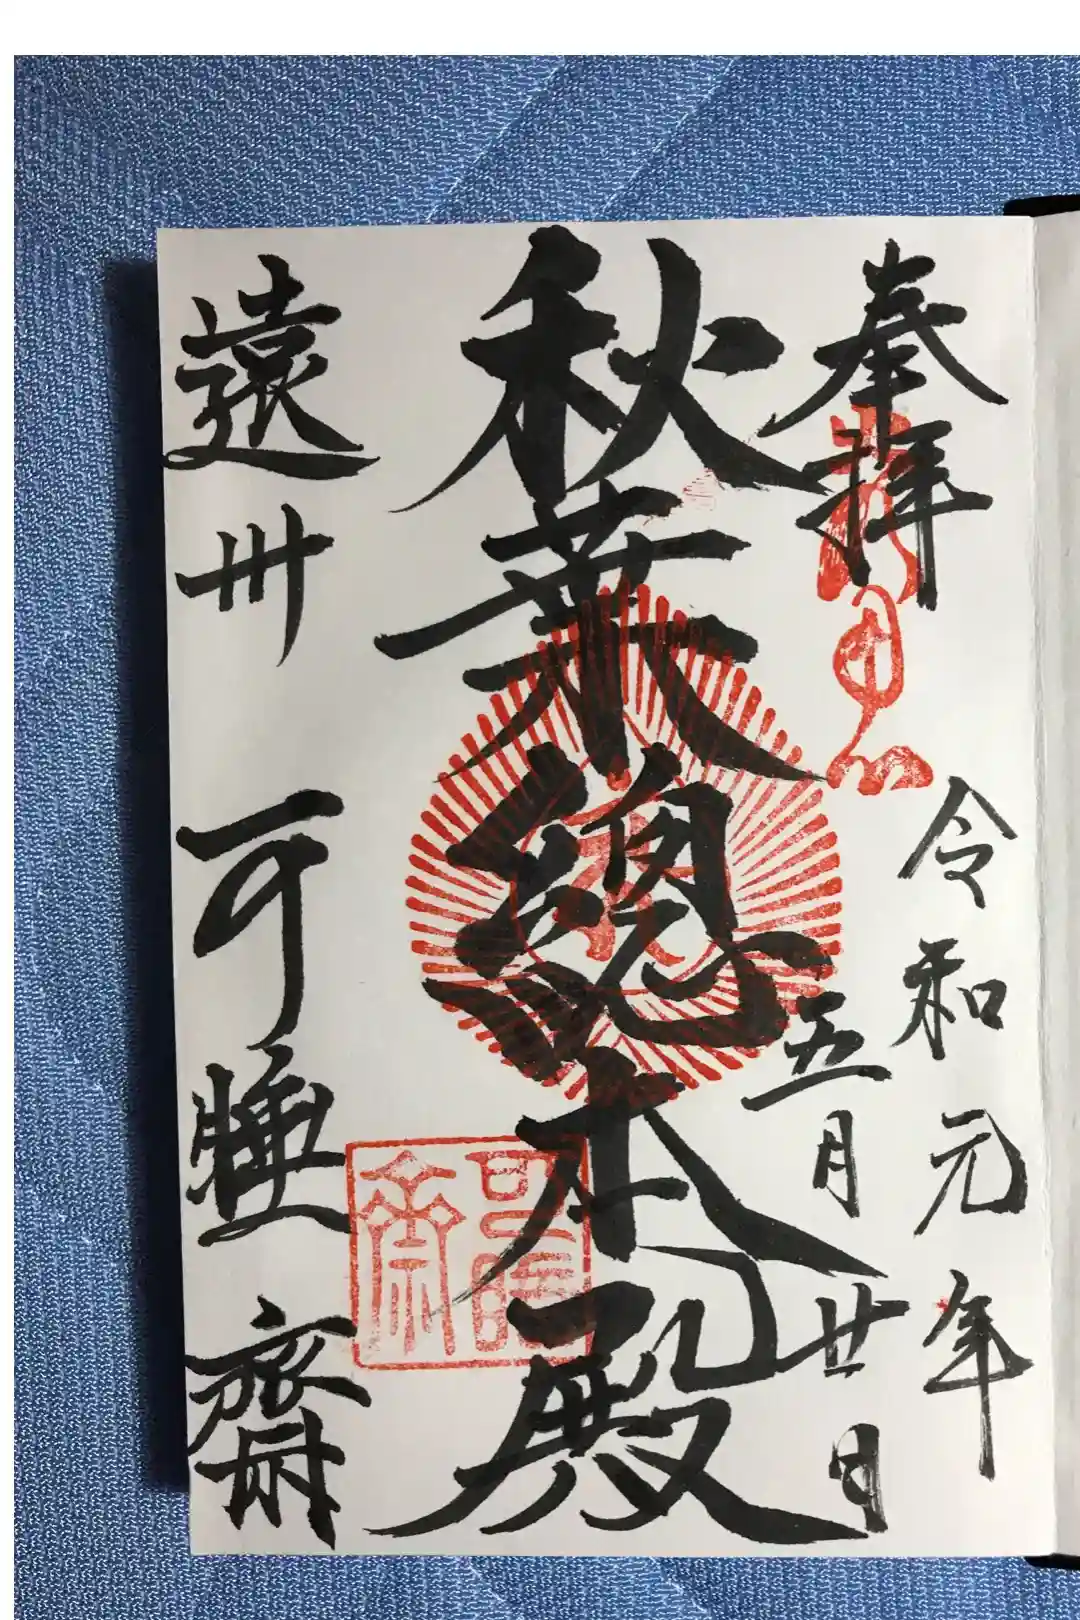 奉拝
令和元年
五月廿日
秋葉總本殿
遠州 可睡齋
可睡齋